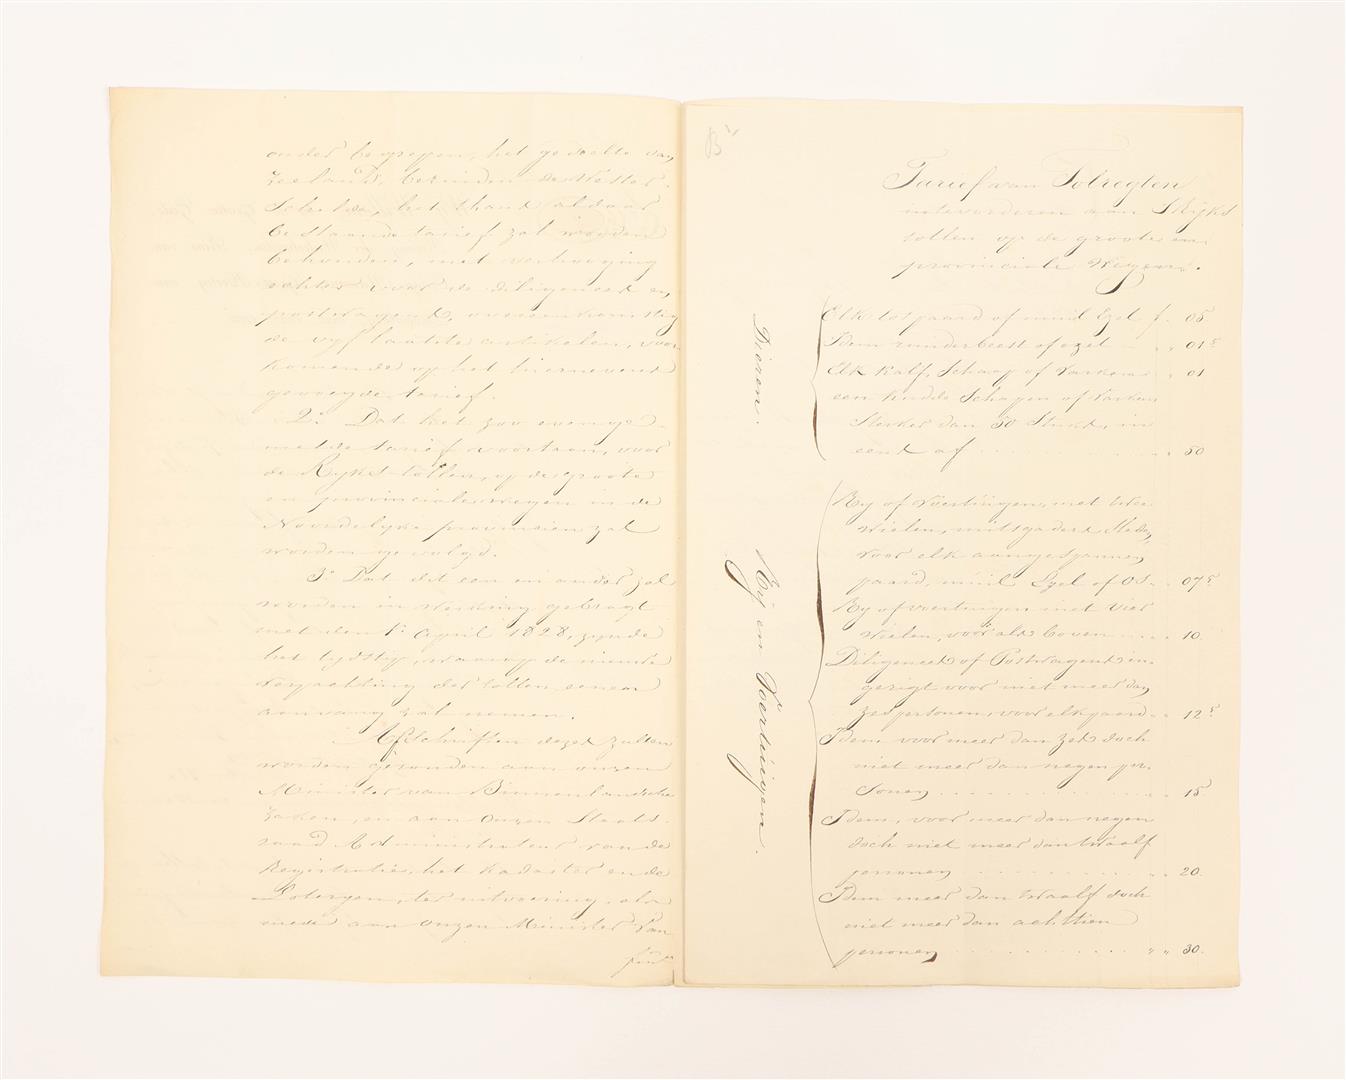 onder begrepen, het gedeelte van
Zeeland, bezuiden de Wester
Schelde, het thans aldaar
bestaande tarief zal worden
behouden, met verhooging
echter voor de diligences en
postwagens, overeenkomstig
de vyf laatste artikelen, voor
komende op het hiernevens
gevoegde tarief.
2o Dat het zoo evenge-
melde tarief voortaan, voor
de Ryks tollen, op de groote
en provinciale wegen in de
Noordelyke provincien zal
worden gevolgd.
3o Dat dit een en ander zal
worden in werking gebragt
met den 1n April 1828, zynde
het tydstip, waarop de nieuwe
verpachting der tollen, eenen
aanvang zal nemen.
Afschriften dezes zullen
worden gezonden aan onzen
Minister van Binnenlandsche
Zaken, en aan Onzen Staats-
raad Administrateur van de
Registratie, het Kadaster en de
Loteryen, ter uitvoering, als
mede aan onzen Minister van
fin
B
Tarief van Tolregten
intevorderen aan 's Ryks
tollen op de groote en
provinciale Wegen.
Dieren.
Elk los paard of muil Ezel f. 05
Idem runderbeest of ezel " " 01 5
Elk Kalf, Schaap of Varken " " 01
een kudde Schapen of Varkens
Sterker dan 50 Stuks, in
eens af " 50
Rij en Voertuigen.
Ry of Voertuigen, met twee
wielen, mitsgaders Sleden,
voor elk aangespannen
paard, muil Ezel of Os " 07 5
Ry of voertuigen met vier
wielen, voor als boven " 10.
Diligences of Postwagens in-
gerigt voor niet meer dan
zes personen, voor elk paard " 12 5
Idem voor meer dan zes doch
niet meer dan negen per-
sonen " 15
Idem, voor meer dan negen
doch niet meer dan twaalf
personen " 20.
Idem meer dan twaalf doch
niet meer dan achttien
personen " " 30.